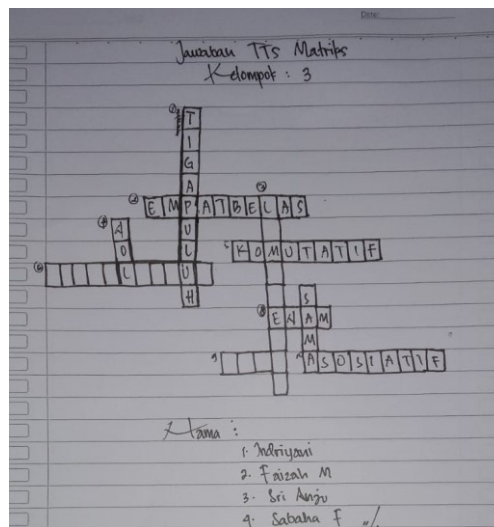 Date:
Jawaban TTS Matriks
Kelompok : 3
TIGAPULUH
EMPATBELAS
NOL
KOMUTATIF
SAMA
ENAM
ASOSIATIF
Nama :
1. Indriyani
2. Faizah M
3. Sri Anju
4. Sabaha F